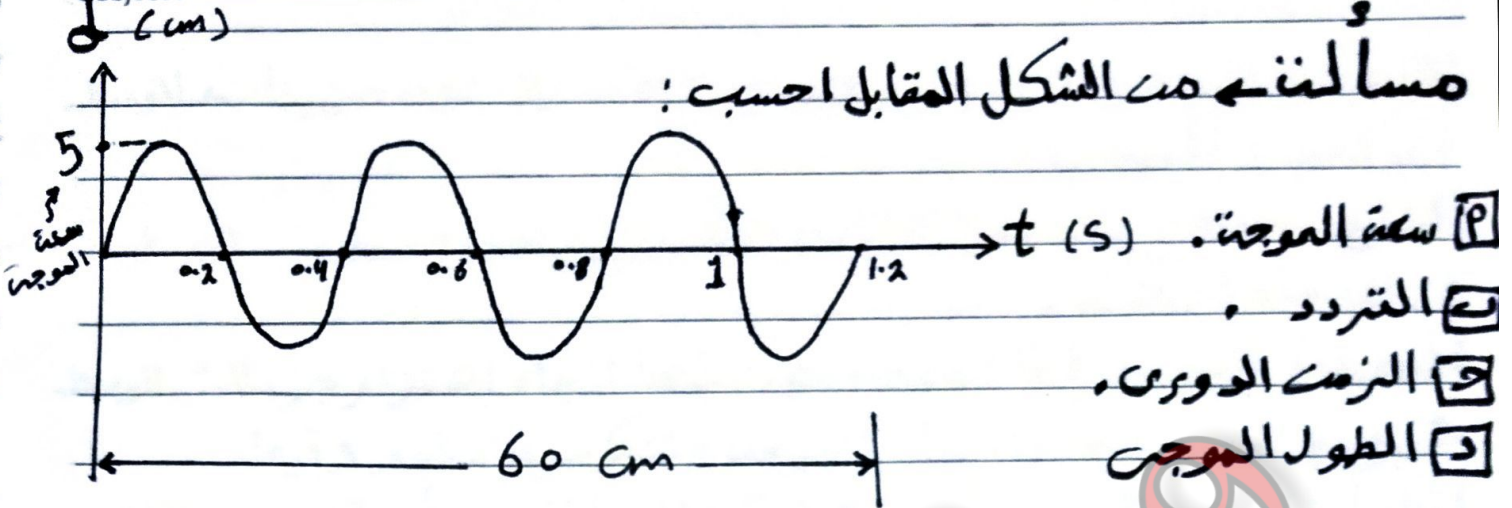 d (cm)
مسألة ← من الشكل المقابل احسب :
5
سعة
الموجة
0.2 0.4 0.6 0.8 1 1.2
t (s)
أ سعة الموجة .
ب التردد .
ج الزمن الدورى .
د الطول الموجى
60 cm